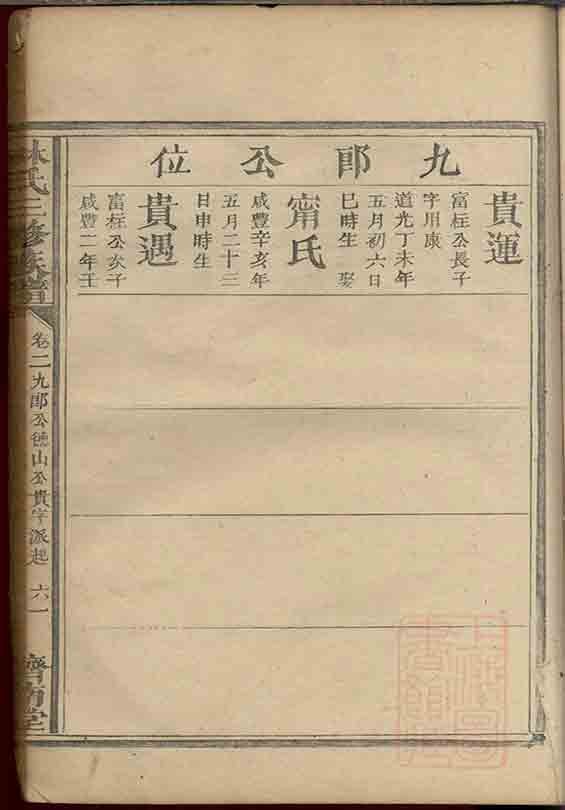 九郎公位
貴運
富枉公長子
字用康
道光丁未年
五月初六日
巳時生 娶
甯氏
咸豐辛亥年
五月二十三
日申時生
貴遇
富枉公次子
咸豐二年壬
林氏三修族譜
卷二九郎公德山公貴字派起
六一
濟南堂
上海圖書館藏